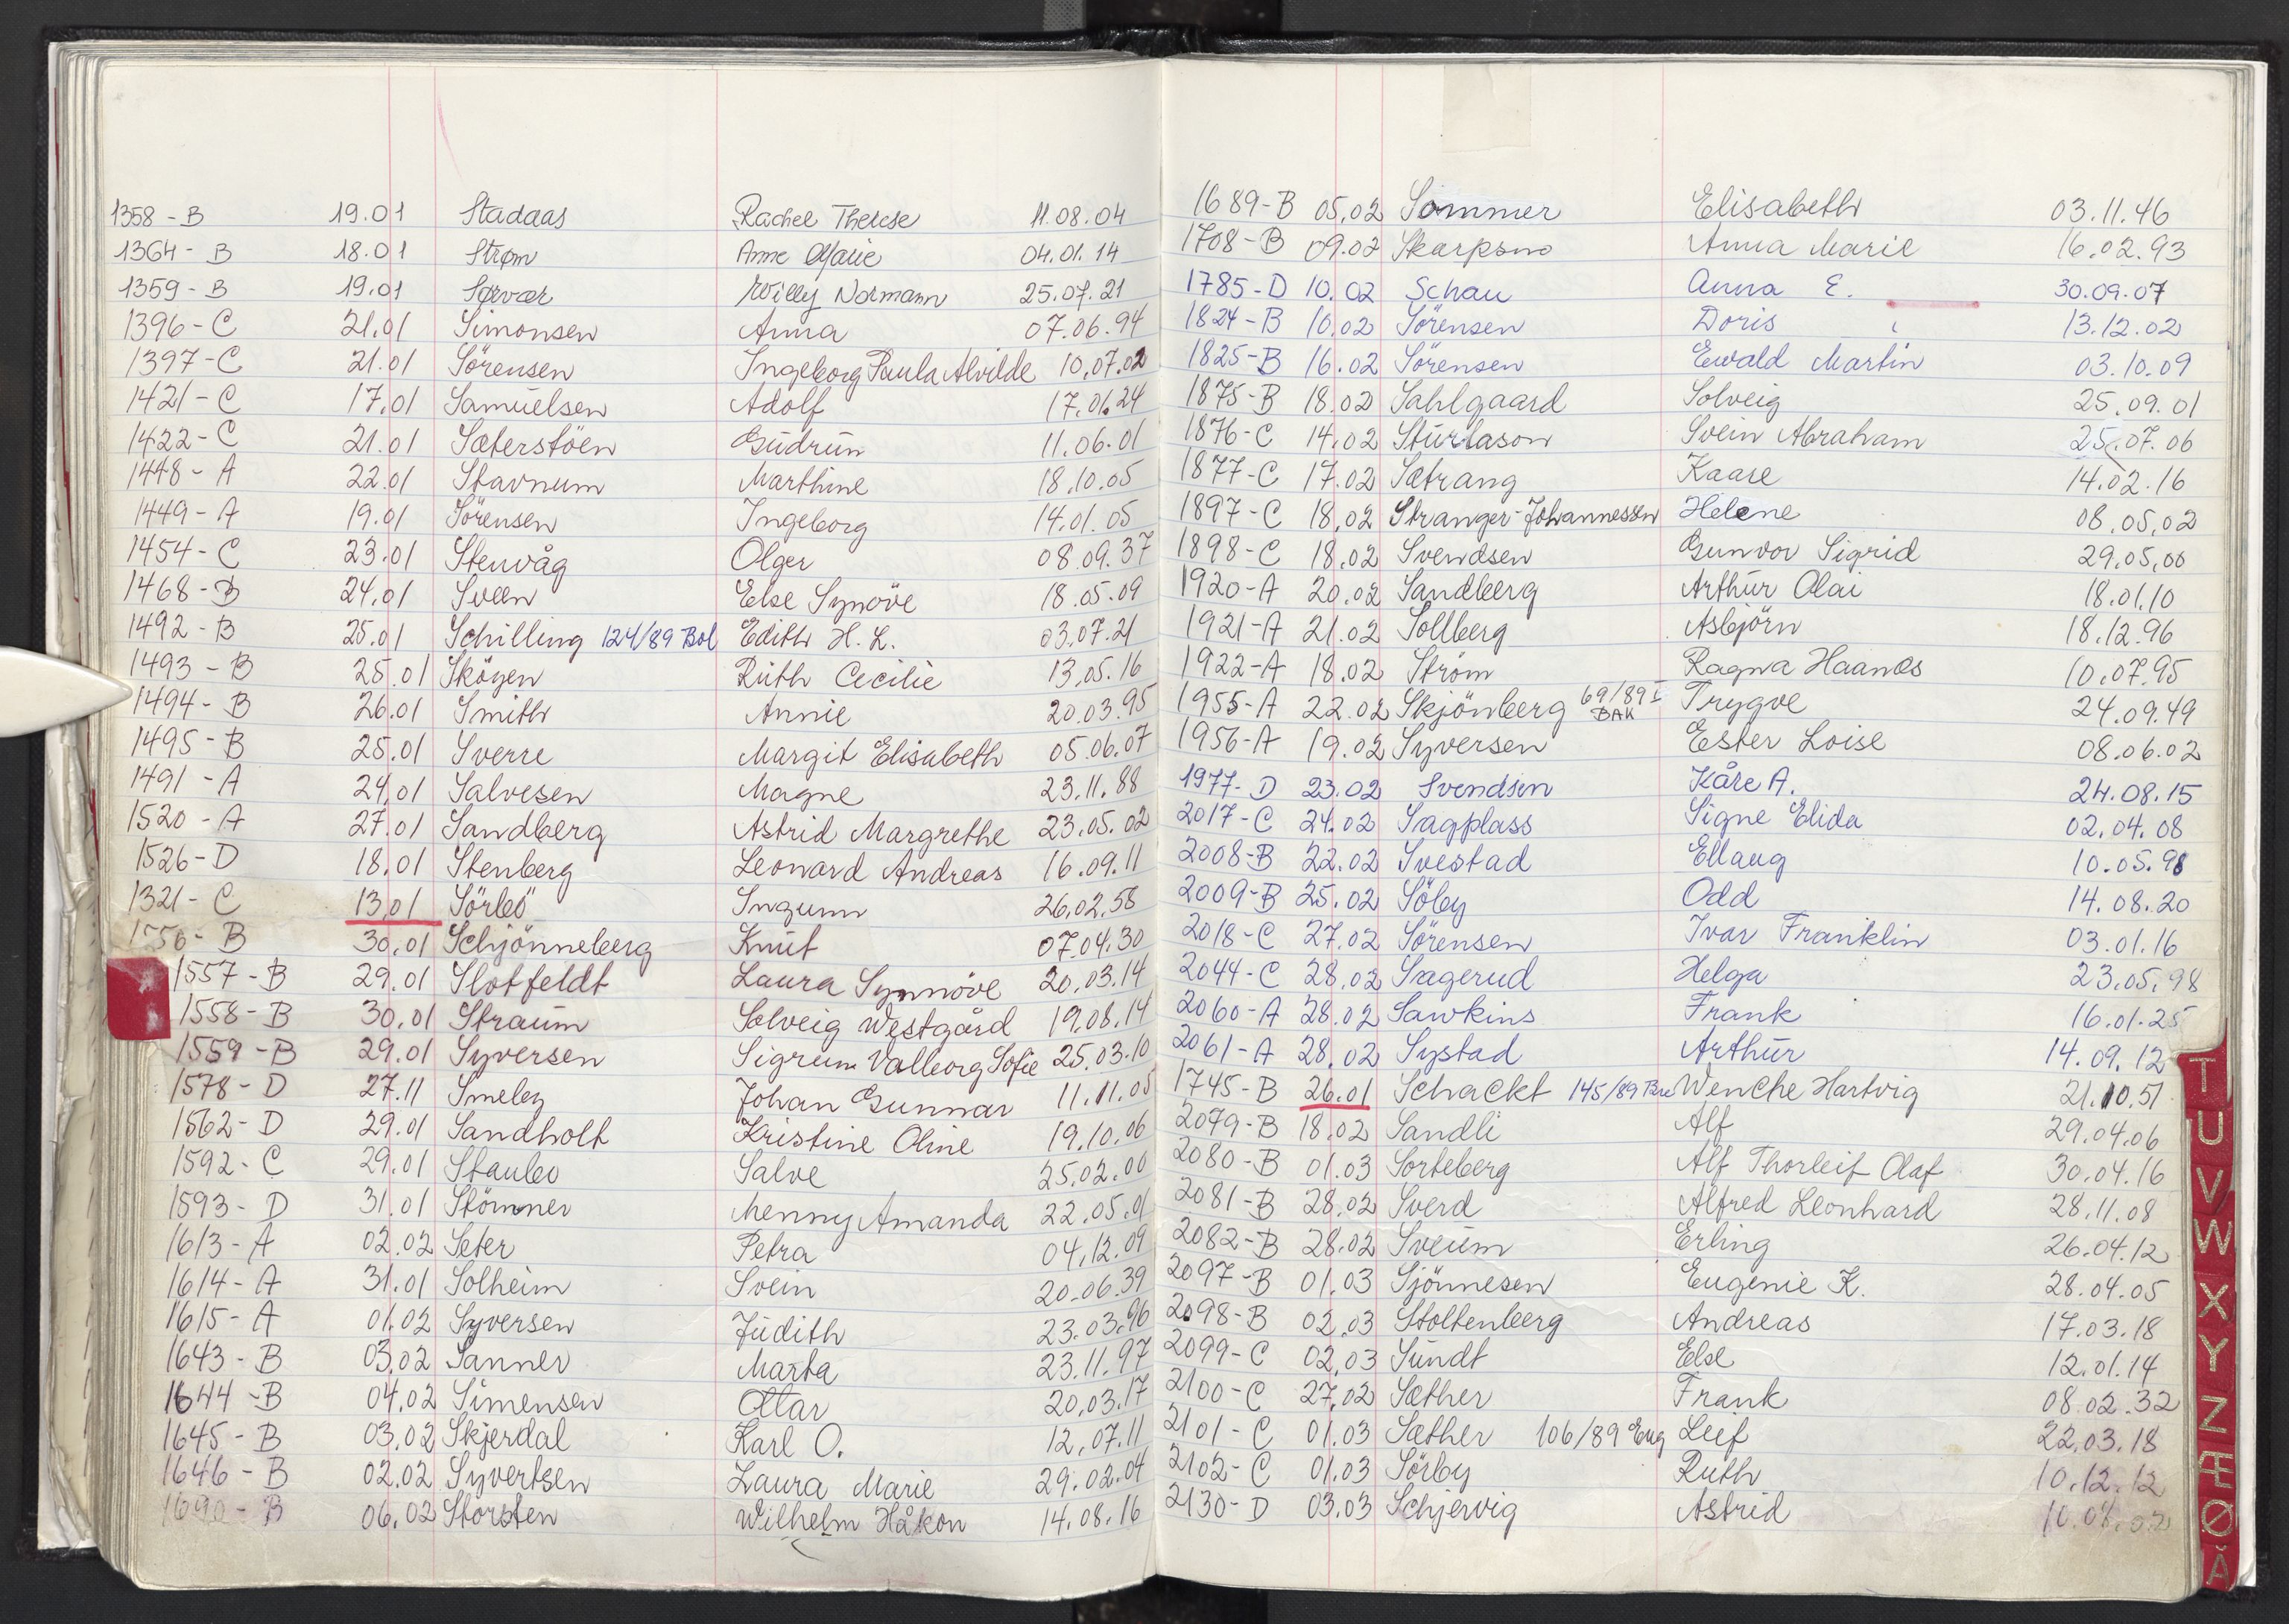 1358-B 19.01 Stadaas Rachel Therese 11.08.04
1364-B 18.01 Strøm Anne Marie 04.01.14
1359-B 19.01 Sørvær Willy Normann 25.07.21
1396-C 21.01 Simonsen Anna 07.06.94
1397-C 21.01 Sörensen Ingeborg Paula Alvilde 10.07.02
1421-C 17.01 Samuelsen Adolf 17.01.24
1422-C 21.01 Sæterstöen Gudrun 11.06.01
1448-A 22.01 Stavnum Marthine 18.10.05
1449-A 19.01 Sörensen Ingeborg 14.01.05
1454-C 23.01 Stenvåg Olger 08.09.37
1468-B 24.01 Sveen Else Synöve 18.05.09
1492-B 25.01 Schilling 124/89 Bol Edith H. L. 03.07.21
1493-B 25.01 Sköyen Ruth Cecilie 13.05.16
1494-B 26.01 Smith Annie 20.03.95
1495-B 25.01 Sverre Margit Elisabeth 05.06.07
1491-A 24.01 Salvesen Magne 23.11.88
1520-A 27.01 Sandberg Astrid Margrethe 23.05.02
1526-D 18.01 Stenberg Leonard Andreas 16.09.11
1321-C 13.01 Sörbö Ingunn 26.02.58
1556-B 30.01 Schjönneberg Knut 07.04.30
1557-B 29.01 Slotfeldt Laura Synnöve 20.03.14
1558-B 30.01 Straum Solveig Westgård 19.08.14
1559-B 29.01 Syversen Sigrun Valborg Sofie 25.03.10
1578-D 27.11 Smeby Johan Gunnar 11.11.05
1562-D 29.01 Sandholt Kristine Oline 19.10.06
1592-C 29.01 Staubo Salve 25.02.00
1593-D 31.01 Stömner Menny Amanda 22.05.01
1613-A 02.02 Seter Petra 04.12.09
1614-A 31.01 Solheim Svein 20.06.39
1615-A 01.02 Syversen Judith 23.03.96
1643-B 03.02 Sanner Marta 23.11.97
1644-B 04.02 Simensen Ottar 20.03.17
1645-B 03.02 Skjerdal Karl O. 12.07.11
1646-B 02.02 Syvertsen Laura Marie 29.02.04
1690-B 06.02 Storsten Wilhelm Håkon 14.08.16
1689-B 05.02 Sommer Elisabeth 03.11.46
1708-B 09.02 Skarpsno Anna Marie 16.02.93
1785-D 10.02 Schau Anna E. 30.09.07
1824-B 10.02 Sörensen Doris 13.12.02
1825-B 16.02 Sörensen Ewald Martin 03.10.09
1875-B 18.02 Sahlgaard Solveig 25.09.01
1876-C 14.02 Sturlason Svein Abraham 25.07.06
1877-C 17.02 Sætrang Kaare 14.02.16
1897-C 18.02 Stranger-Johannessen Helene 08.05.02
1898-C 18.02 Svendsen Gunvor Sigrid 29.05.00
1920-A 20.02 Sandberg Arthur Olai 18.01.10
1921-A 21.02 Sollberg Asbjörn 18.12.96
1922-A 18.02 Ström Ragna Haanes 10.07.95
1955-A 22.02 Skjönberg 69/89 I BAK Trygve 24.09.49
1956-A 19.02 Syversen Ester Loise 08.06.02
1977-D 23.02 Svendsen Kåre A. 24.08.15
2017-C 24.02 Sagplass Signe Elida 02.04.08
2008-B 22.02 Svestad Ellaug 10.05.98
2009-B 25.02 Söby Odd 14.08.20
2018-C 27.02 Sörensen Ivar Franklin 03.01.16
2044-C 28.02 Sagerud Helga 23.05.98
2060-A 28.02 Sawkins Frank 16.01.25
2061-A 28.02 Systad Arthur 14.09.12
1745-B 26.01 Schackt 145/89 Wenche Hartvig 21.10.51
2079-B 18.02 Sandli Alf 29.04.06
2080-B 01.03 Sorteberg Alf Thorleif Olaf 30.04.16
2081-B 28.02 Sverd Alfred Leonhard 28.11.08
2082-B 28.02 Sveum Erling 26.04.12
2097-B 01.03 Sjönnesen Eugenie K. 28.04.05
2098-B 02.03 Stoltenberg Andreas 17.03.18
2099-C 02.03 Sundt Else 12.01.14
2100-C 27.02 Sæther Frank 08.02.32
2101-C 01.03 Sæther 106/89 Eug Leif 22.03.18
2102-C 01.03 Sörby Ruth 10.12.12
2130-D 03.03 Schjervig Astrid
T
U
V
W
X
Y
Z
Æ
Ø
Å